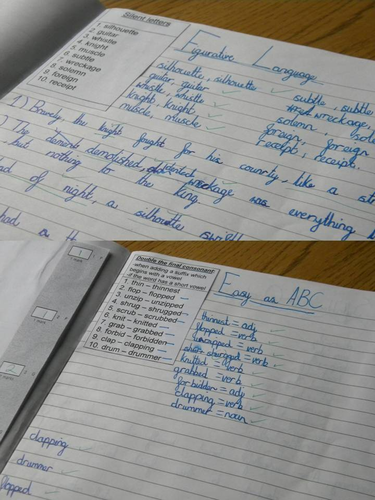 Silent letters
1. silhouette
2. guitar
3. whistle
4. knight
5. muscle
6. subtle
7. wreckage
8. solemn
9. foreign
10. receipt
Figurative Language
silhouette, silhouette
guitar, guitar
whistle, whistle
knight, knight
muscle, muscle
subtle, subtle
wreckage,
solemn,
foreign, foreign
receipt, receipt.
1) Bravely, the knight fought for his country, like a
The demented wreckage was everything
but nothing to the King.
of night, a silhouette
had a
Double the final consonant
when adding a suffix which
begins with a vowel
if the word has a short vowel
1. thin – thinnest
2. flop – flopped
3. unzip – unzipped
4. shrug – shrugged
5. scrub – scrubbed
6. knit – knitted
7. grab – grabbed
8. forbid – forbidden
9. clap – clapping
10. drum – drummer
Easy as ABC
thinnest = adj
flopped = verb
unzipped = verb
shrugged = verb
knitted = verb
grabbed = verb
forbidden = adj
clapping = verb
drummer = noun
clapping
drummer
flopped